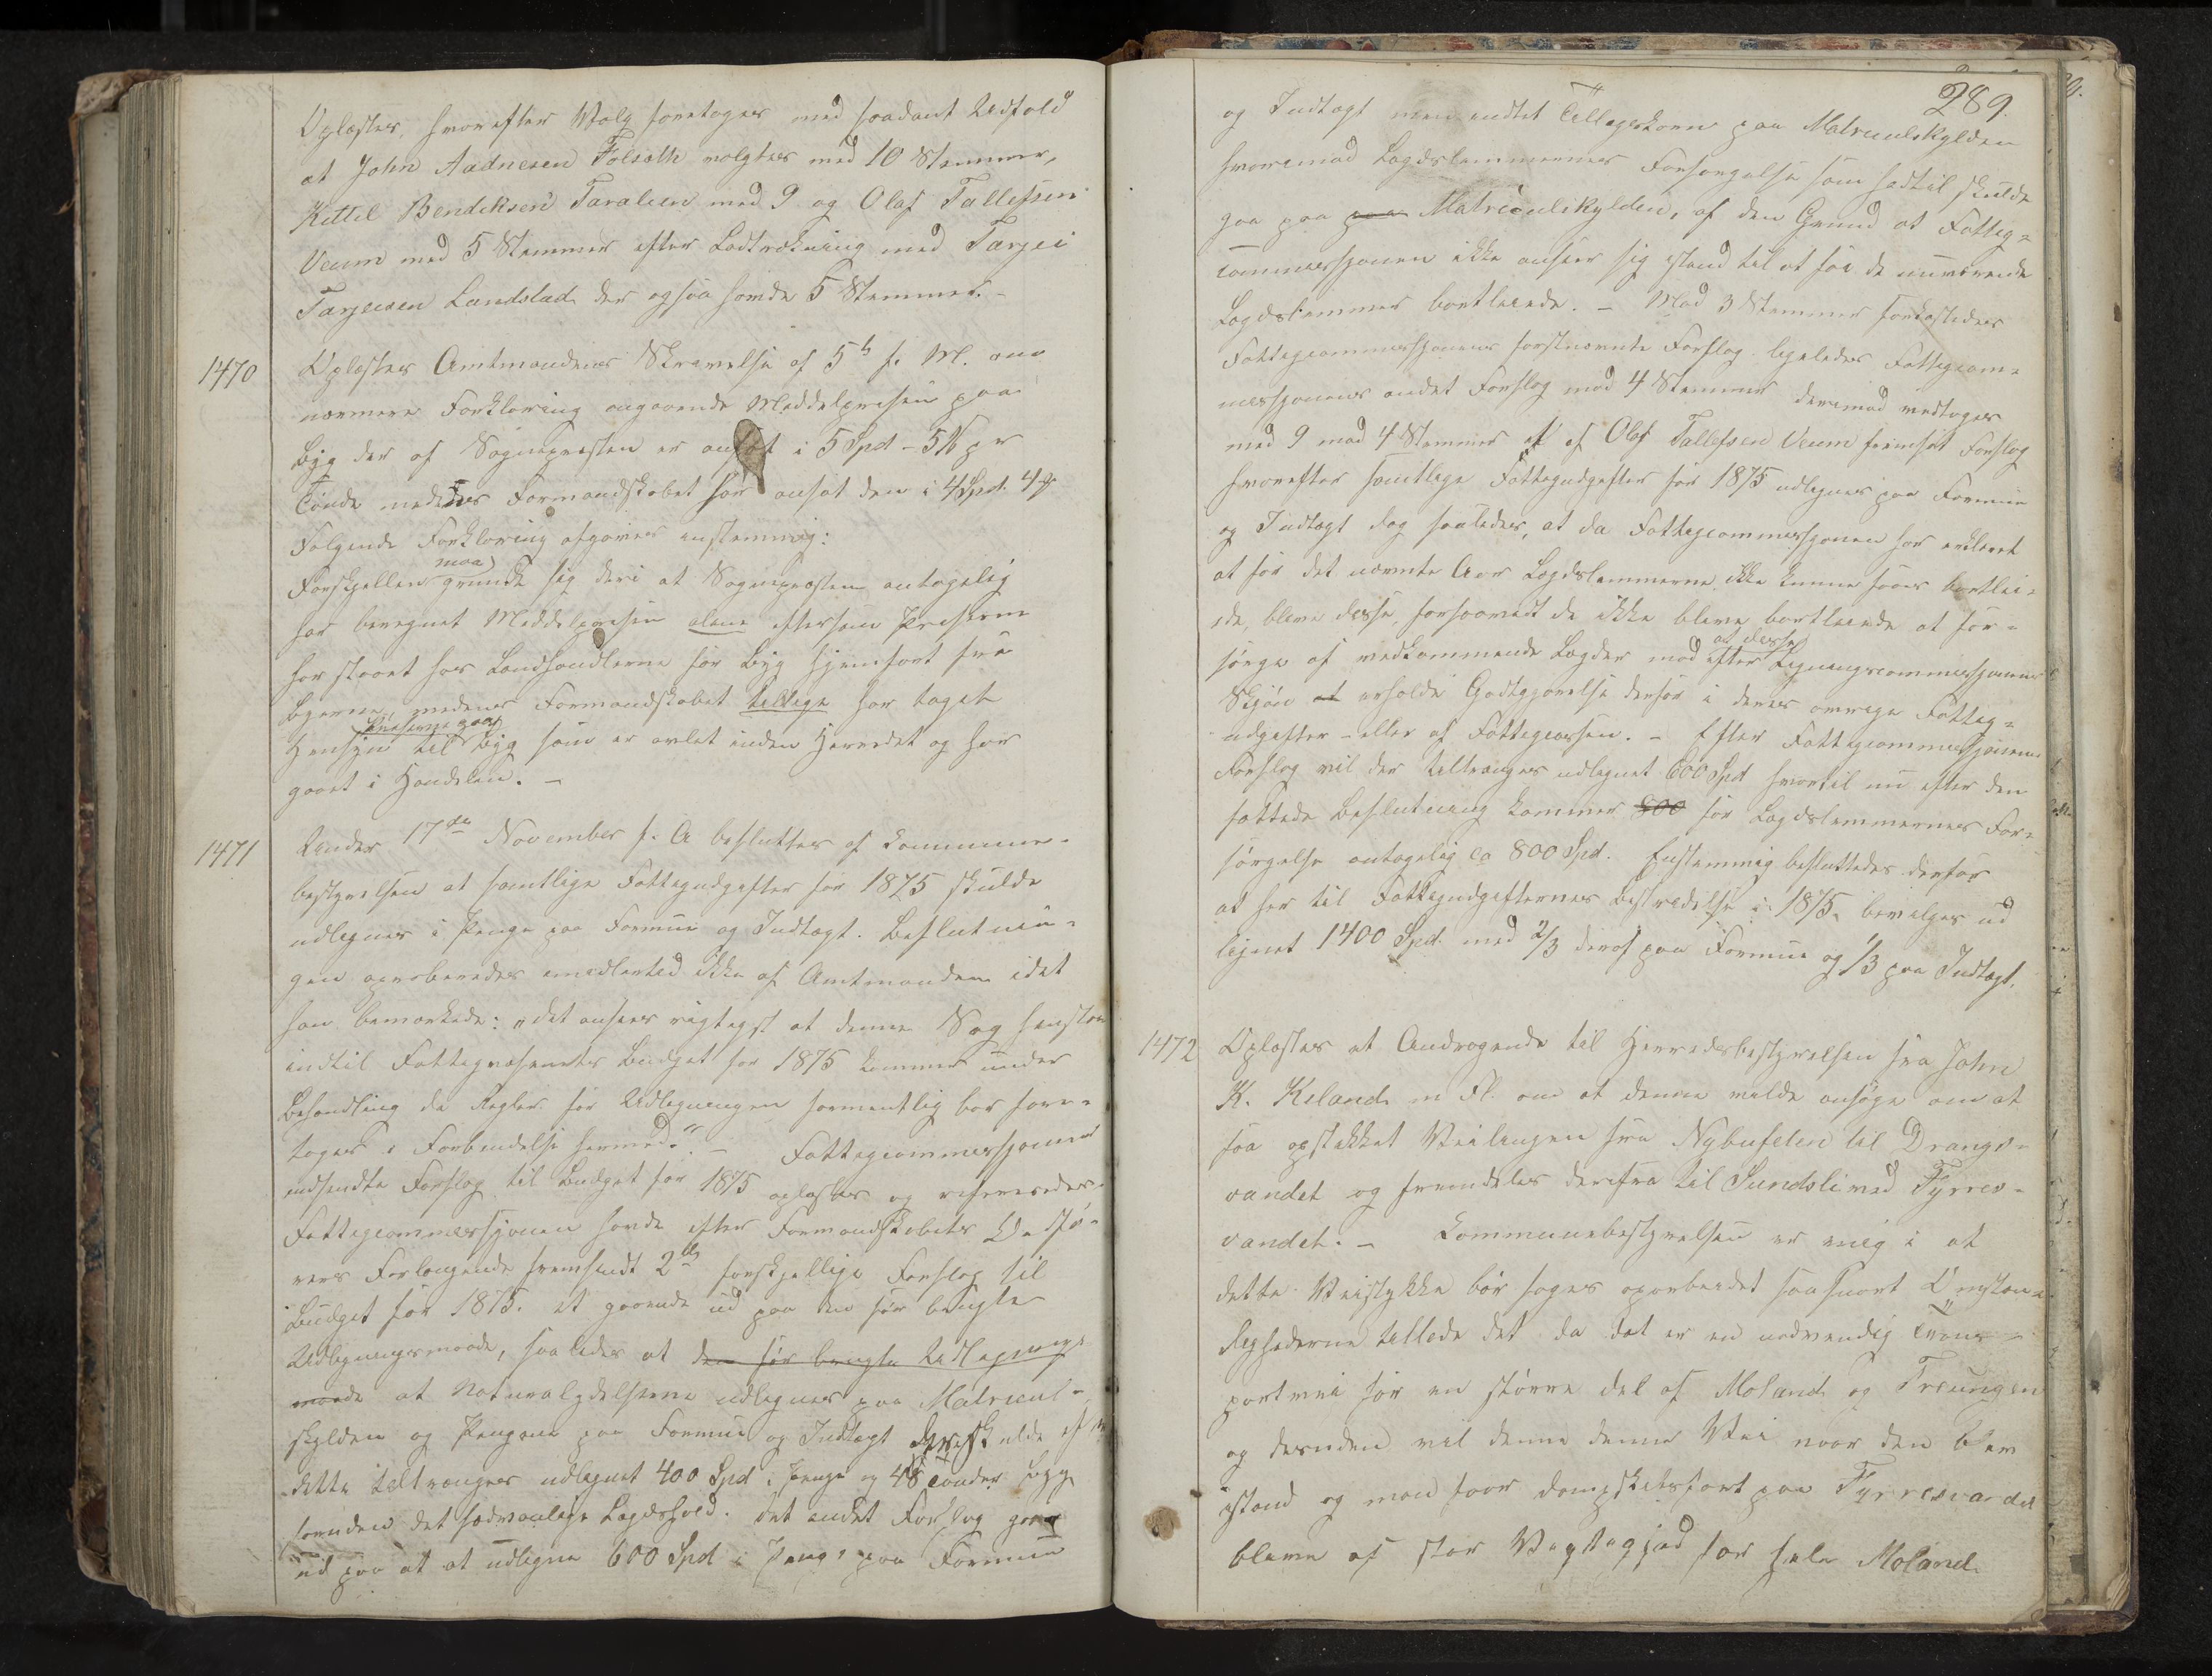 Oplæstes, hvorefter Valg foretoges med saadant Udfald
at John Aadnesen Folsæth valgtes med 10 Stemmer,
Kittil Bendiksen Taraleen med 9 og Olaf Tallefsen
Veum med 5 Stemmer efter Lodtrækning med Tarjei
Tarjeisen Landstad der ogsaa havde 5 Stemmer. –
1470
Oplæstes Amtmandens Skrivelse af 5te f. M. om
nærmere Forklaring angaaende Middelprisen paa
Byg der af Sognepresten er ansat i 5 Spd – pr
Tønde medens Formandskabet har ansat den i 4 Spd. 4
Følgende Forklaring afgaves enstemmig:
Forskjellen maa grunde sig deri at Sognepræsten antagelig
har beregnet Middelprisen alene eftersom Priserne
har staaet hos Landhandlerne for Byg hjemført fra
Byerne, medens Formandskabet tillige har taget
Hensyn til Priserne paa Byg som er avlet inden Herredet og har
gaaet i Handelen. –
1471
Under 17de November f. A besluttes af Kommune-
bestyrelsen at samtlige Fattigudgifter for 1875 skulde
udlignes i Penge paa Formue og Indtægt. Beslutnin-
gen approberedes imidlertid ikke af Amtmanden idet
han bemærkede: „det ansees rigtigst at denne Sag henstaar
indtil Fattigvæsenets Budget for 1875 kommer under
Behandling da Regler for Udligningen formentlig bør fore-
tages i Forbindelse hermed." – Fattigcommissjonens
indsendte Forslag til Budget for 1875 oplæstes og refereredes.
Fattigcommissjonen havde efter Formandskabets Ordfø-
rers Forlangende fremsendt 2de forskjellige Forslag til
Budget for 1875. et gaaende ud paa den før brugte
Udligningsmaade, saaledes at den før brugte Udlignings
maade at Naturalydelserne udlignes paa Matricul-
skylden og Pengene paa Formue og Indtægt skulde efter
dette tiltrænges udlignet 400 Spd i Penge og 48 Tønder Byg
foruden det sædvanlige Lægdshold. Det andet Forslag gaar
ud paa at at udligne 600 Spd i Penge paa Formue
289.
og Indtægt men intet Tillægskorn paa Matriculskylden
hvorimod Lægdslemmernes Forsørgelse som hidtil skulde
gaa paa paa Matriculskylden, af den Grund at Fattig-
commissjonen ikke anseer sig istand til at faa de nuværende
Lægdslemmer bortleiede. – Mod 3 Stemmer forkastedes
Fattigcommissjonens førstnævnte Forslag ligeledes Fattigcom-
missjonens andet Forslag mod 4 Stemmer derimod vedtoges
med 9 mod 4 Stemmer et af Olaf Tallefsen Veum fremsat Forslag
hvorefter samtlige Fattigudgifter for 1875 udlignes paa Formue
og Indtægt dog saaledes, at da Fattigcommissjonen har erklæret
at for det nævnte Aar Lægdslemmerne ikke kunne faaes bortlei-
ede, blive disse, forsaavidt de ikke blive bortleiede at for-
sørges af vedkommende Lægder mod at disse efter Ligningscommissjonens
Skjøn at erholde Godtgjørelse derfor i deres øvrige Fattig-
udgifter – eller af Fattigcassen. – Efter Fattigcommissjonens
Forslag vil der tiltrænges udlignet 600 Spd hvortil nu efter den
fattede Beslutning kommer 800 for Lægdslemmernes For-
sørgelse antagelig ca 800 Spd. Enstemmig besluttedes derfor
at her til Fattigudgifternes Bestridelse i 1875. bevilges ud
lignet 1400 Spd. med 2/3 deraf paa Formue og 1/3 paa Indtægt.
1472
Oplæstes et Andragende til Herredsbestyrelsen fra John
K. Kiland m Fl. om at denne vilde ansøge om at
faa opstukket Veilinien fra Nybufelen til Drangs-
vandet og fremdeles derifra til Sundsli ved Fyrres-
vandet. – Kommunebestyrelsen er enig i at
dette Veistykke bør søges oparbeidet saasnart Omstæn-
dighederne tillade det da det er en nødvendig Trans-
portvei for en større del af Moland og Treungen
og desuden vil denne denne Vei naar den blev
istand og man faar dampskibsfart paa Fyrresvandet
blive af stor Vigtighed for hele Moland